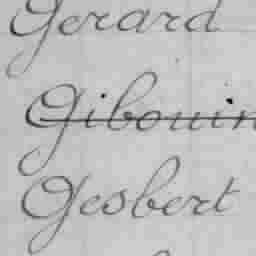 Gerard
Gibouin
Gesbert